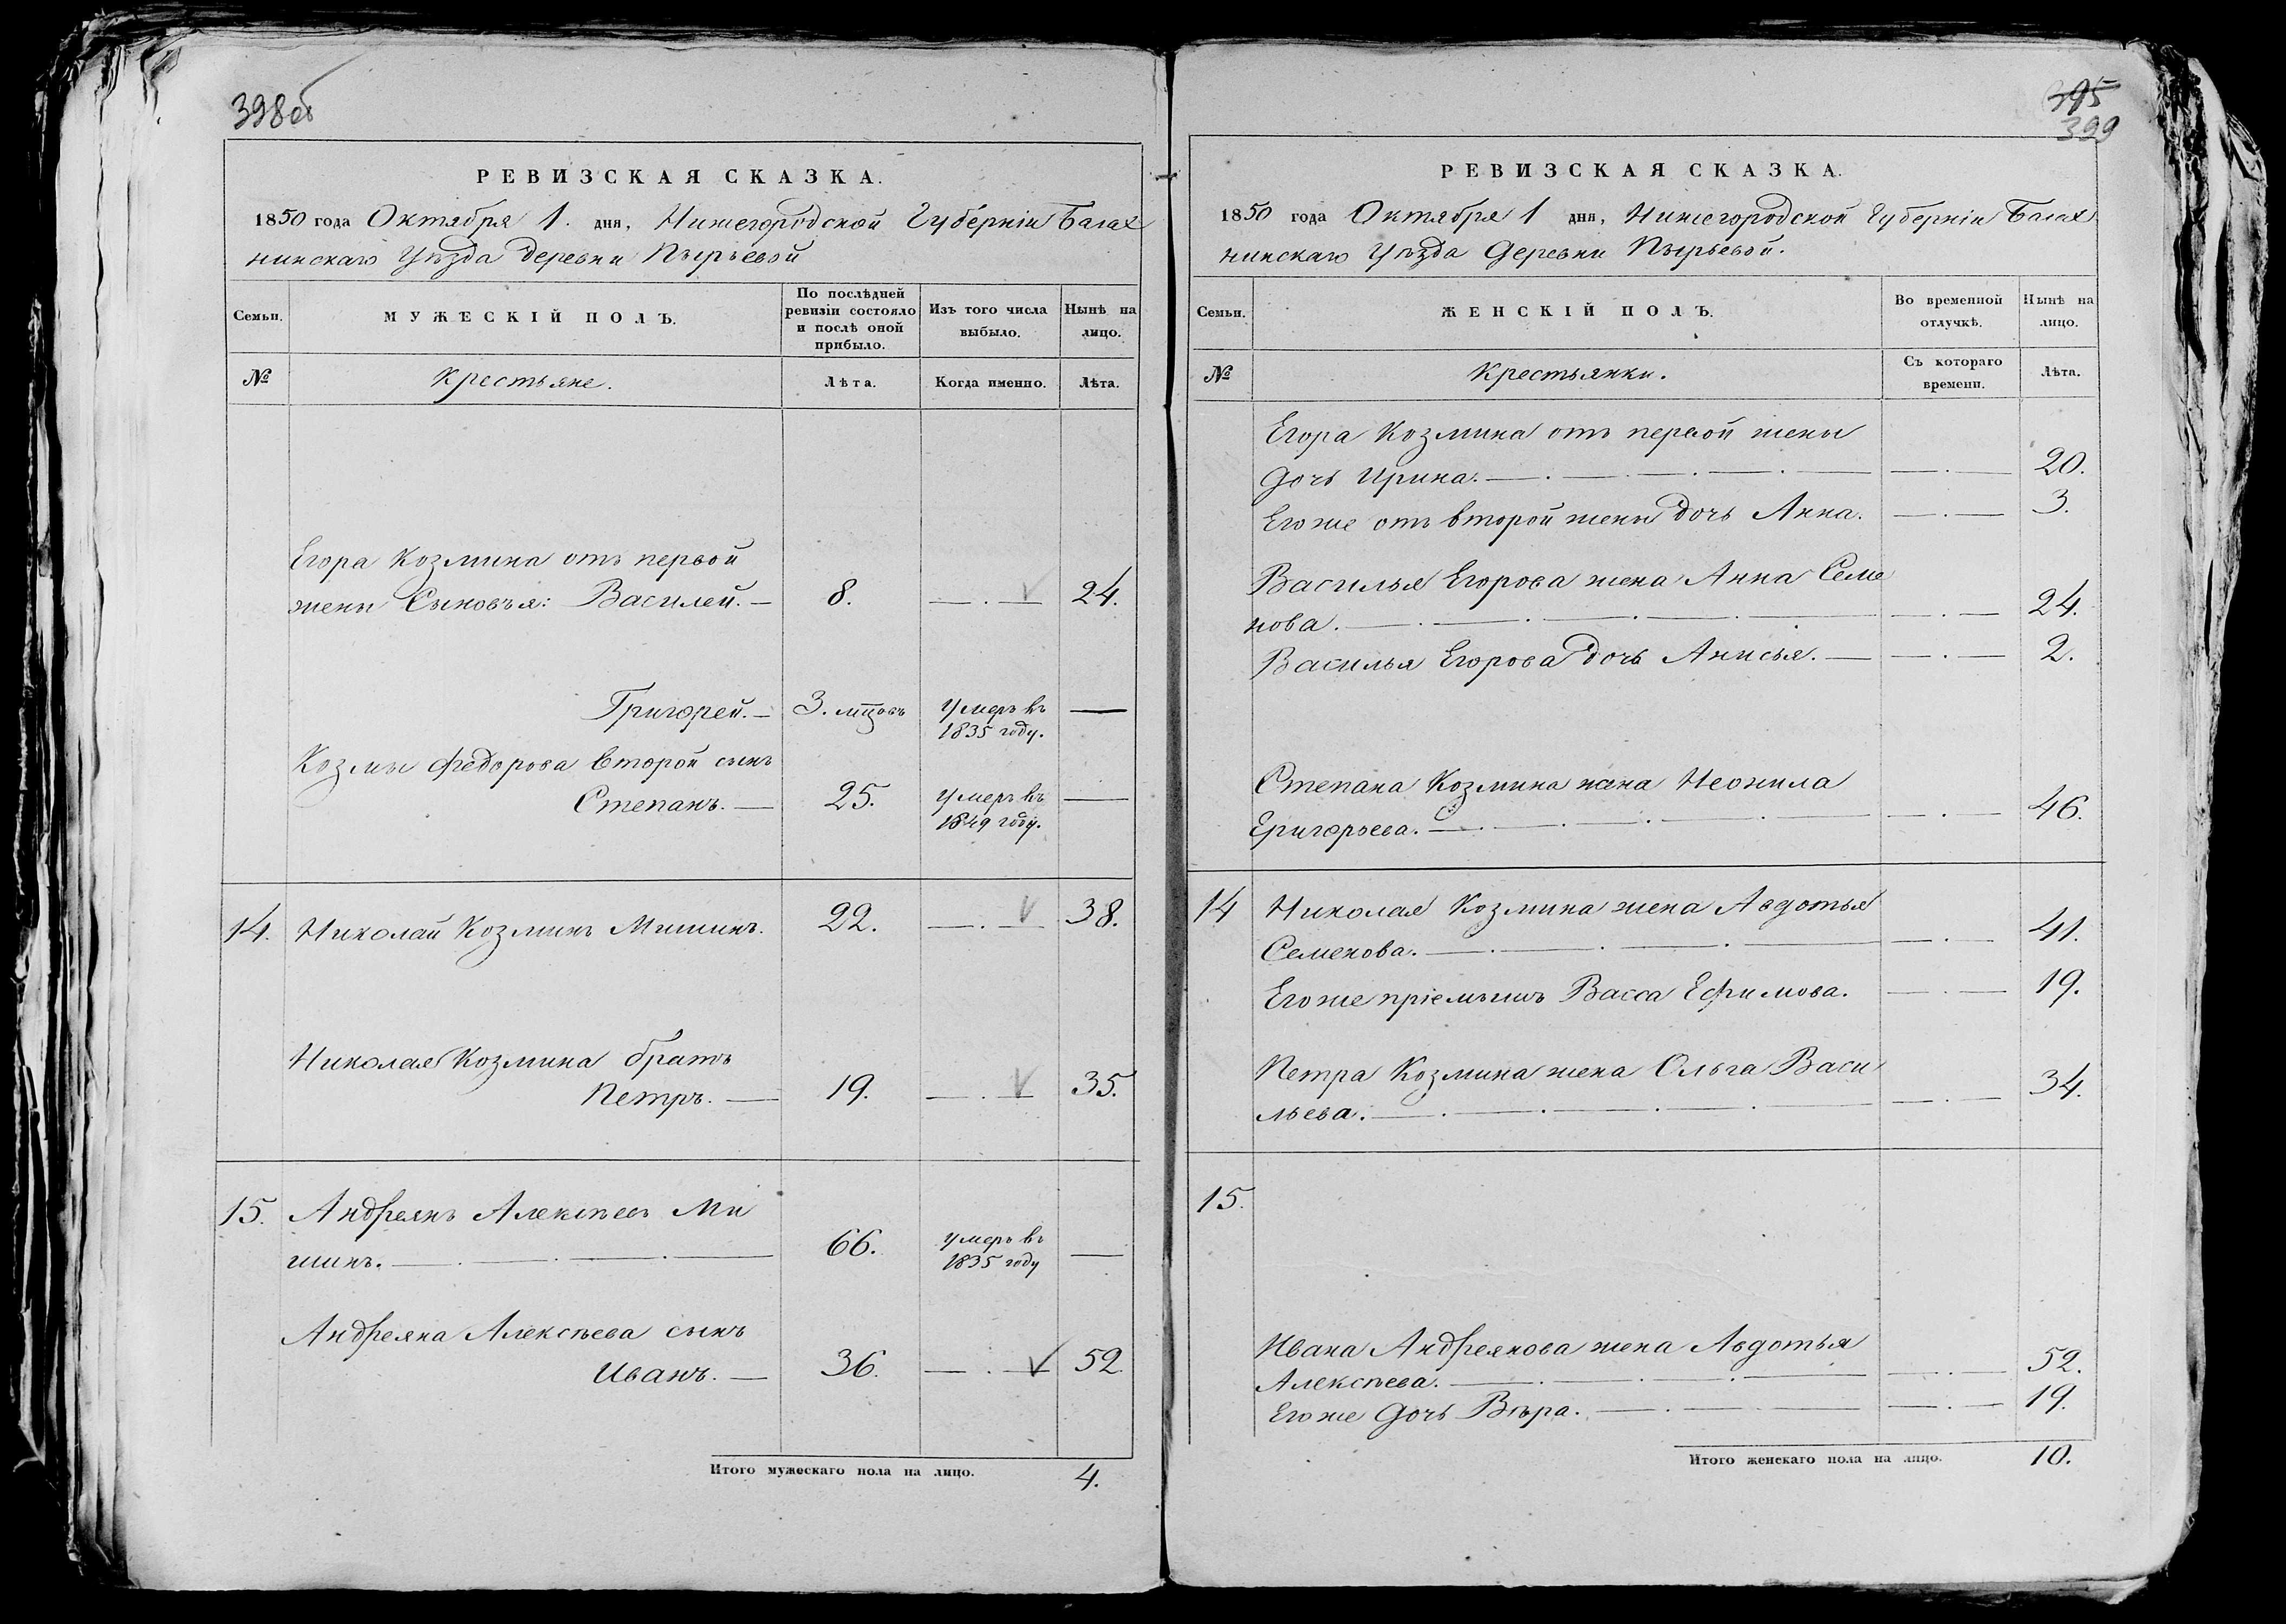 398об
РЕВИЗСКАЯ СКАЗКА.
1850 года Октября 1. дня, Нижегородской Губерніи Балах
нинскаго Уѣзда деревни Пырьевой
Семьи.
МУЖЕСКІЙ ПОЛЪ.
По послѣдней
ревизіи состояло
и послѣ оной
прибыло.
Изъ того числа
выбыло.
Нынѣ на
лицо.
№
Крестьяне.
Лѣта.
Когда именно.
Лѣта.
Егора Козмина отъ первой
жены Сыновья: Василей. — 8. — . — 24.
Григорей. — 3. мцовъ умеръ въ —
1835 году.
Козмы Федорова второй сынъ
Степанъ. — 25. умеръ въ —
1849 году.
14. Николай Козминъ Мишинъ. 22. — . — 38.
Николая Козмина братъ
Петръ. — 19. — . — 35.
15. Андреянъ Алексѣевъ Ми
шинъ. — . — . — 66. умеръ въ —
1835 году
Андреяна Алексѣева сынъ
Иванъ. — 36. — . — 52.
Итого мужескаго пола на лицо. 4.
395
399
РЕВИЗСКАЯ СКАЗКА.
1850 года Октября 1 дня, Нижегородской Губерніи Балах
нинскаго Уѣзда Деревни Пырьевой.
Семьи.
ЖЕНСКІЙ ПОЛЪ.
Во временной
отлучкѣ.
Нынѣ на
лицо.
№
Крестьянки.
Съ котораго
времени.
Лѣта.
Егора Козмина отъ первой жены
дочь Ирина. — . — . — . — — . — 20.
Его же отъ второй жены дочь Анна. — . — 3.
Василья Егорова жена Анна Семе
нова. — . — . — . — . — — . — 24.
Василья Егорова дочь Анисья. — — . — 2.
Степана Козмина жена Неонила
Григорьева. — . — . — . — . — — . — 46.
14 Николая Козмина жена Авдотья
Семенова. — . — . — . — — . — 41.
Его же пріемышъ Васса Ефимова. — . — 19.
Петра Козмина жена Ольга Васи
льева. — . — . — . — . — — . — 34.
15.
Ивана Андреянова жена Авдотья
Алексѣева. — . — . — . — — . — 52.
Его же дочь Вѣра. — . — . — — . — 19.
Итого женскаго пола на лицо. 10.